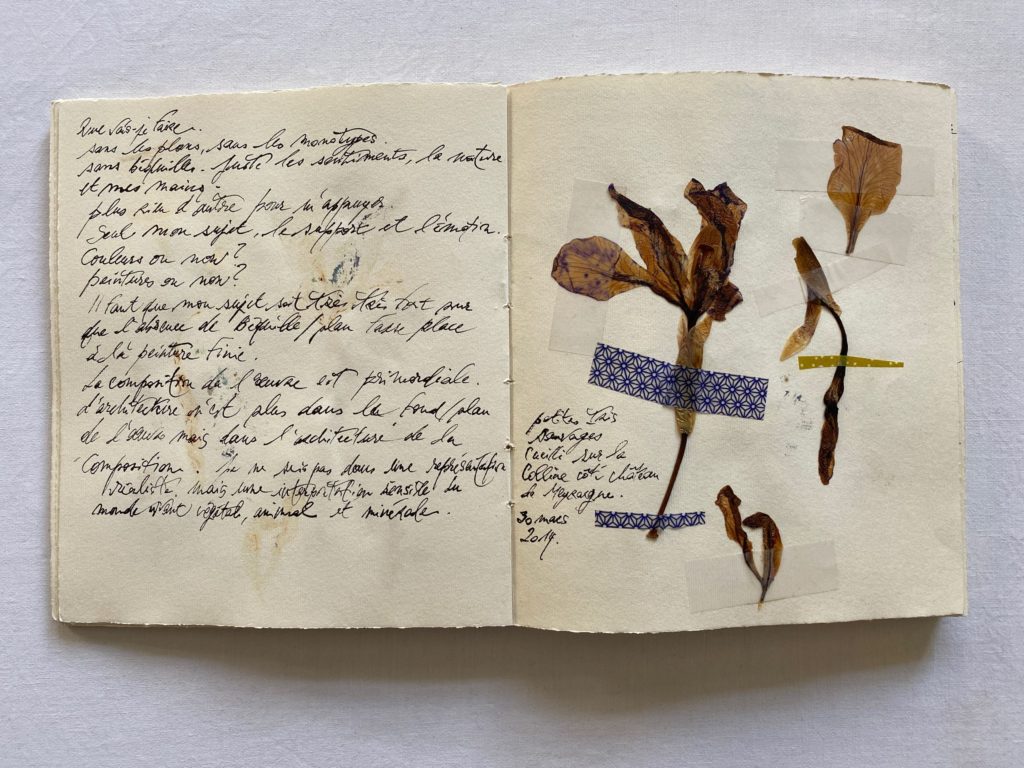 Que vais-je faire.
sans les plans, sans les monotypes.
sans béquilles. Juste les sentiments, la nature
et mes mains.
plus rien d'autre pour m'appuyer.
Seul mon sujet, le support et l'émotion.
Couleurs ou non?
peintures ou non?
Il faut que mon sujet soit très très fort pour
que l'absence de Béquille/plan fasse place
à la peinture finie.
La composition de l'oeuvre est primordiale.
L'architecture n'est plus dans le fond/plan
de l'oeuvre mais dans l'architecture de la
composition. Je ne suis pas dans une représentation
réaliste. mais une interprétation sensible du
monde vivant végétal, animal et minérale.
petites Iris
Sauvages
Cueilli sur la
Colline côté château
de Meyrargue.
30 mars
2019.